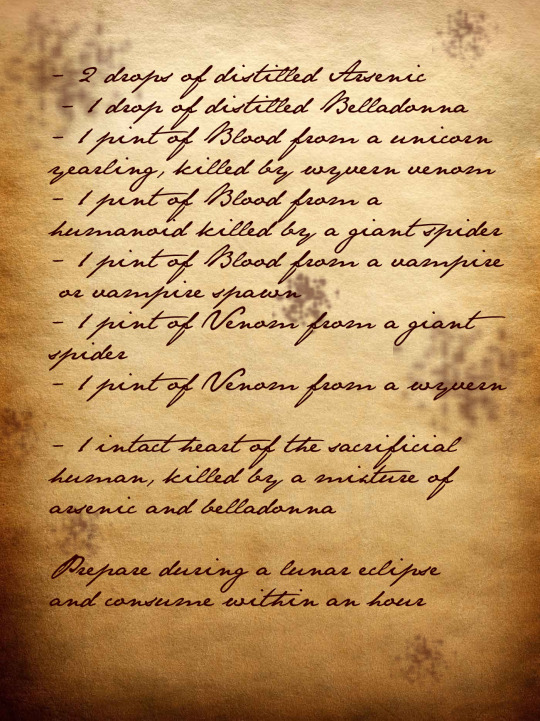 - 2 drops of distilled Arsenic
- 1 drop of distilled Belladonna
- 1 pint of Blood from a unicorn
yearling, killed by wyvern venom
- 1 pint of Blood from a
humanoid killed by a giant spider
- 1 pint of Blood from a vampire
or vampire spawn
- 1 pint of Venom from a giant
spider
- 1 pint of Venom from a wyvern
- 1 intact heart of the sacrificial
human, killed by a mixture of
arsenic and belladonna
Prepare during a lunar eclipse
and consume within an hour